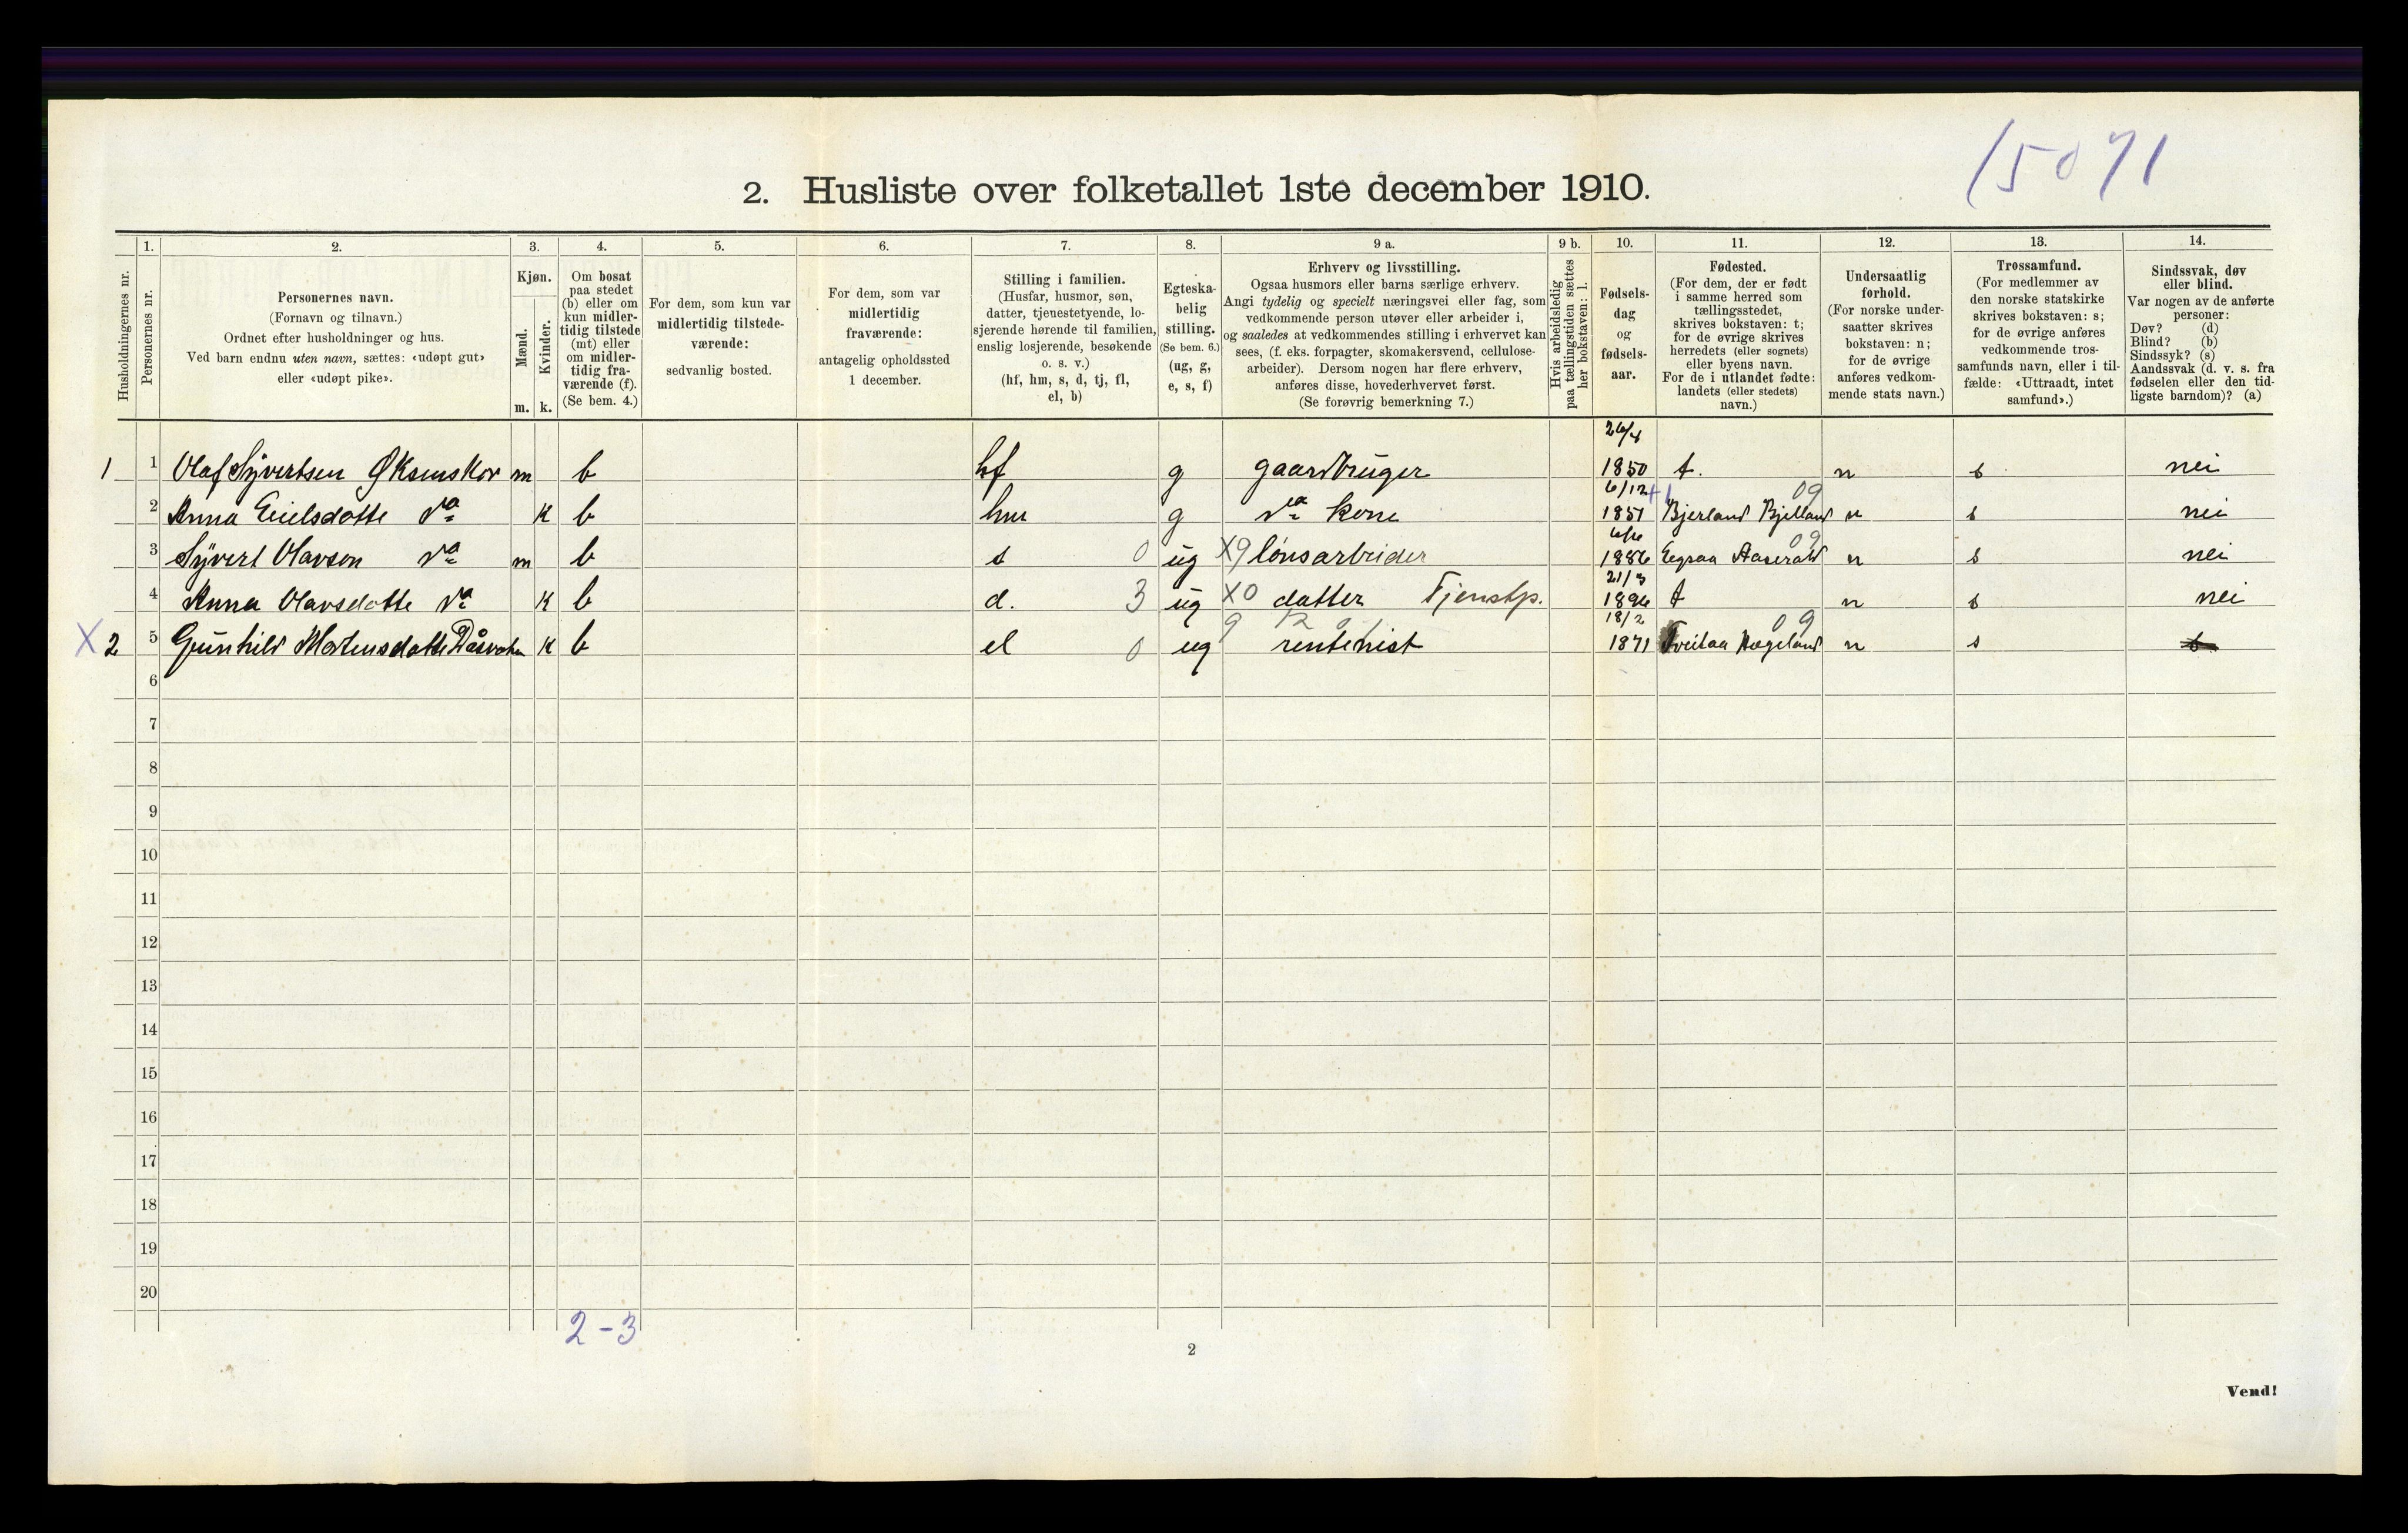 15071
2. Husliste over folketallet 1ste december 1910.
Husholdningernes nr.
1.
Personernes nr.
2.
Personernes navn.
(Fornavn og tilnavn.)
Ordnet efter husholdninger og hus.
Ved barn endnu uten navn, sættes: «udøpt gut»
eller «udøpt pike».
3.
Kjøn.
Mænd.
Kvinder.
m. k.
4.
Om bosat
paa stedet
(b) eller om
kun midler-
tidig tilstede
(mt) eller
om midler-
tidig fra-
værende (f).
(Se bem. 4.)
5.
For dem, som kun var
midlertidig tilstede-
værende:
sedvanlig bosted.
6.
For dem, som var
midlertidig
fraværende:
antagelig opholdssted
1 december.
7.
Stilling i familien.
(Husfar, husmor, søn,
datter, tjenestetyende, lo-
sjerende hørende til familien,
enslig losjerende, besøkende
o. s. v.)
(hf, hm, s, d, tj, fl,
el, b)
8.
Egteska-
belig
stilling.
(Se bem. 6.)
(ug, g,
e, s, f)
9 a.
Erhverv og livsstilling.
Ogsaa husmors eller barns særlige erhverv.
Angi tydelig og specielt næringsvei eller fag, som
vedkommende person utøver eller arbeider i,
og saaledes at vedkommendes stilling i erhvervet kan
sees, (f. eks. forpagter, skomakersvend, cellulose-
arbeider). Dersom nogen har flere erhverv,
anføres disse, hovederhvervet først.
(Se forøvrig bemerkning 7.)
9 b.
Hvis arbeidsledig
paa tællingstiden sættes
her bokstaven: l.
10.
Fødsels-
dag
og
fødsels-
aar.
11.
Fødested.
(For dem, der er født
i samme herred som
tællingsstedet,
skrives bokstaven: t;
for de øvrige skrives
herredets (eller sognets)
eller byens navn.
For de i utlandet fødte:
landets (eller stedets)
navn.)
12.
Undersaatlig
forhold.
(For norske under-
saatter skrives
bokstaven: n;
for de øvrige
anføres vedkom-
mende stats navn.)
13.
Trossamfund.
(For medlemmer av
den norske statskirke
skrives bokstaven: s;
for de øvrige anføres
vedkommende tros-
samfunds navn, eller i til-
fælde: «Uttraadt, intet
samfund».)
14.
Sindssvak, døv
eller blind.
Var nogen av de anførte
personer:
Døv? (d)
Blind? (b)
Sindssyk? (s)
Aandssvak (d. v. s. fra
fødselen eller den tid-
ligste barndom)? (a)
1 1 Olaf Syvertsen m b hf g gaardbruger 1850 t. n s nei
2 Anna da K b hm g 6/12 1851 da kone Bjerland Bjelland 09 n s nei
3 Syvert Olavson da m b s 0 ug X9 lønsarbeider Aaserald 09 n s nei
4 Anna Olavsdatte da K b d. 3 ug X0 datter Tjenstp. 21/3 1896 t n s nei
X 2 5 Gunhild Mortensdatte K b el 0 ug 9 rentenist 18/2 1871 Hægeland 09 n s
6
7
8
9
10
11
12
13
14
15
16
17
18
19
20
2-3
2
Vend!